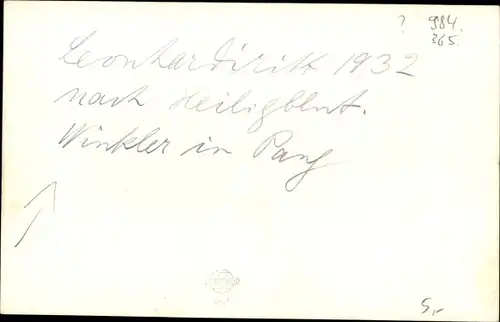 ? 984.
365.
Leonhardiritt 1932
nach Heiligblut.
Winkler in Pang
5,-